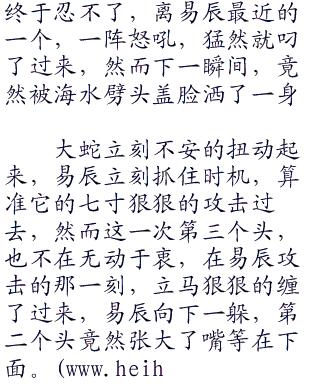 终于忍不了，离易辰最近的
一个，一阵怒吼，猛然就叼
了过来，然而下一瞬间，竟
然被海水劈头盖脸洒了一身
大蛇立刻不安的扭动起
来，易辰立刻抓住时机，算
准它的七寸狠狠的攻击过
去，然而这一次第三个头，
也不在无动于衷，在易辰攻
击的那一刻，立马狠狠的缠
了过来，易辰向下一躲，第
二个头竟然张大了嘴等在下
面。(www.heih